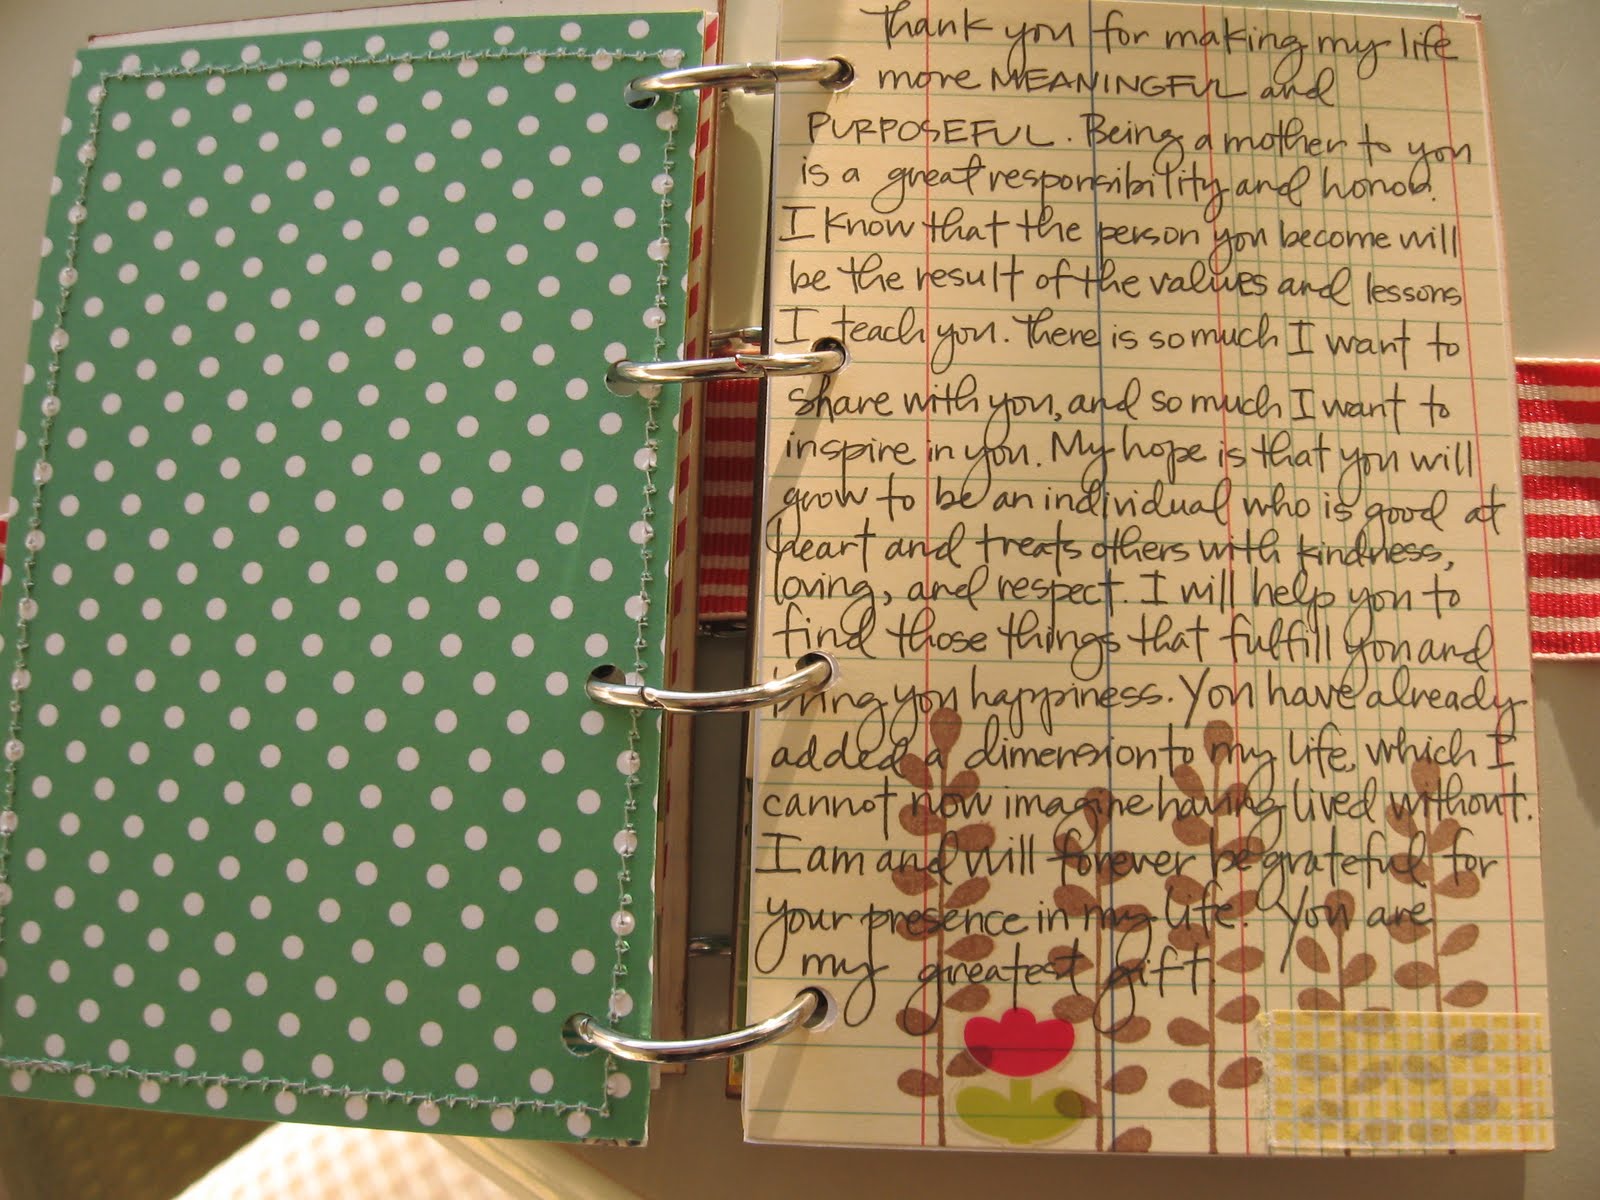 Thank you for making my life
more MEANINGFUL and
PURPOSEFUL. Being a mother to you
is a great responsibility and honor.
I know that the person you become will
be the result of the values and lessons
I teach you. There is so much I want to
share with you, and so much I want to
inspire in you. My hope is that you will
grow to be an individual who is good at
heart and treats others with kindness,
loving, and respect. I will help you to
find those things that fulfill you and
bring you happiness. You have already
added a dimension to my life, which I
cannot now imagine having lived without.
I am and will forever be grateful for
your presence in my life. You are
my greatest gift.